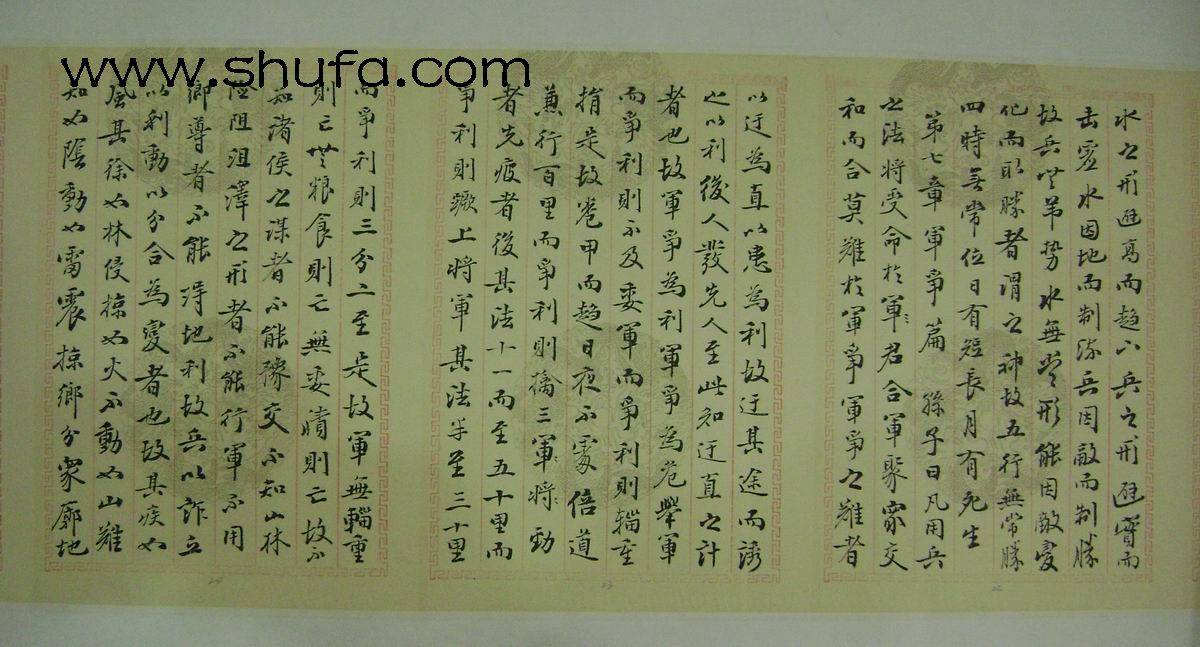 www.shufa.com
水之形避高而趨下兵之形避實而
击虛水因地而制流兵因敵而制勝
故兵無常勢水無常形能因敵變
化而取勝者謂之神故五行無常勝
四時無常位日有短長月有死生
第七章 軍爭篇 孫子曰凡用兵
之法將受命於軍君合軍聚眾交
和而合莫難於軍爭軍爭之難者
以迂為直以患為利故迂其途而誘
之以利後人發先人至此知迂直之計
者也故軍爭為利軍爭為危舉軍
而爭利則不及委軍而爭利則輜重
捐是故卷甲而趨日夜不處倍道
兼行百里而爭利則擒三軍將勁
者先疲者後其法十一而至五十里而
爭利則蹶上將軍其法半至三十里
而爭利則三分二至是故軍無輜重
則亡無粮食則亡無委積則亡故不
知諸侯之謀者不能豫交不知山林
險阻沮澤之形者不能行軍不用
鄉導者不能得地利故兵以詐立
以利動以分合為變者也故其疾如
風其徐如林侵掠如火不動如山難
知如陰動如雷震掠鄉分眾廓地
22
23
24